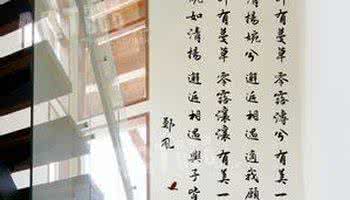 有蔓草零露漙兮有美一
清揚婉兮邂逅相遇適我願
有蔓草零露瀼瀼有美一
婉如清揚邂逅相遇與子
鄭風